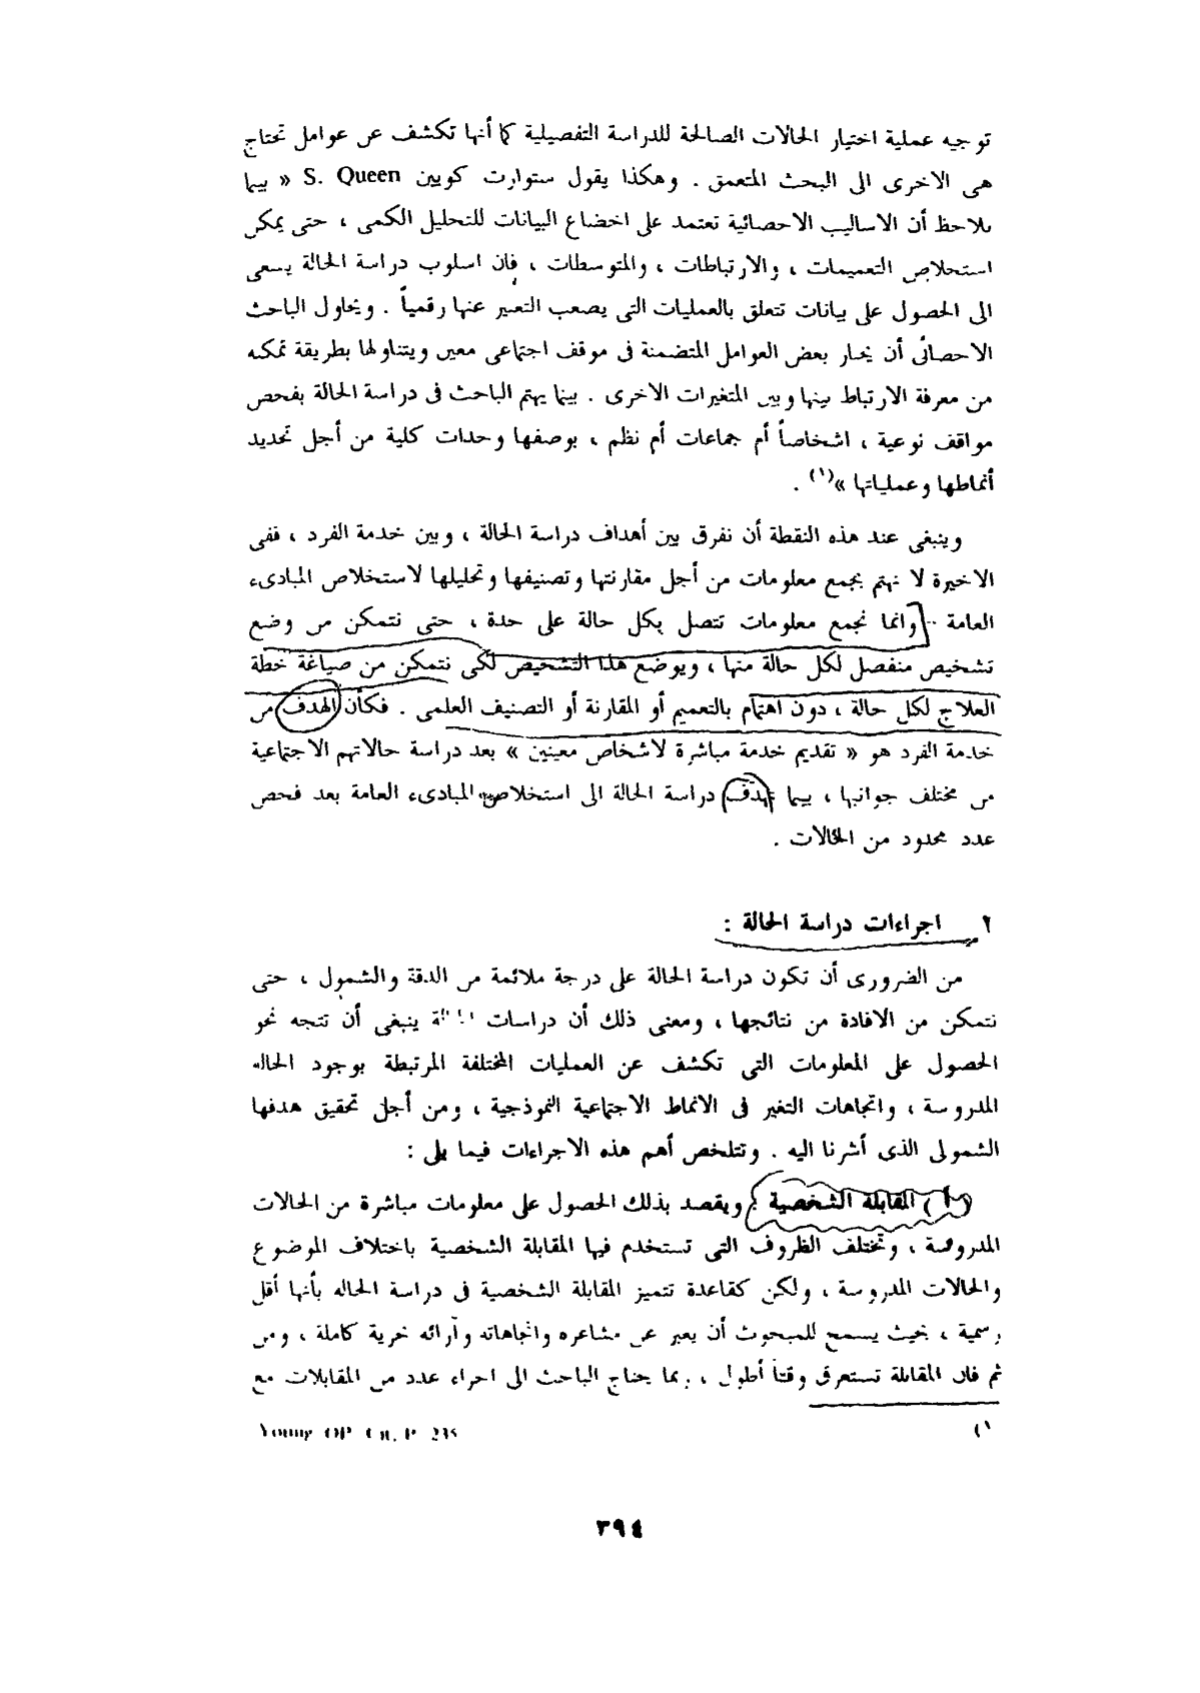 توجيه عملية اختيار الحالات الصالحة للدراسة التفصيلية كما أنها تكشف عن عوامل تحتاج
هى الاخرى الى البحث المتعمق . وهكذا يقول ستوارت كويين S. Queen » بينما
يلاحظ أن الاساليب الاحصائية تعتمد على اخضاع البيانات للتحليل الكمى ، حتى يمكن
استخلاص التعميمات ، والارتباطات ، والمتوسطات ، فإن اسلوب دراسة الحالة يسعى
الى الحصول على بيانات تتعلق بالعمليات التى يصعب التعبير عنها رقمياً . ويحاول الباحث
الاحصائى أن يختار بعض العوامل المتضمنة فى موقف اجتماعى معين ويتناولها بطريقة تمكنه
من معرفة الارتباط بينها وبين المتغيرات الاخرى . بينما يهتم الباحث فى دراسة الحالة بفحص
مواقف نوعية ، اشخاصاً أم جماعات أم نظم ، بوصفها وحدات كلية من أجل تحديد
أنماطها وعملياتها »(١) .
وينبغى عند هذه النقطة أن نفرق بين أهداف دراسة الحالة ، وبين خدمة الفرد ، ففى
الاخيرة لا نهتم بجمع معلومات من أجل مقارنتها وتصنيفها وتحليلها لاستخلاص المبادىء
العامة وانما نجمع معلومات تتصل بكل حالة على حدة ، حتى نتمكن من وضع
تشخيص منفصل لكل حالة منها ، ويوضع هذا التشخيص لكى نتمكن من صياغة خطة
العلاج لكل حالة ، دون اهتمام بالتعميم أو المقارنة أو التصنيف العلمى . فكأن الهدف من
خدمة الفرد هو « تقديم خدمة مباشرة لاشخاص معينين » بعد دراسة حالاتهم الاجتماعية
من مختلف جوانبها ، بينما تهدف دراسة الحالة الى استخلاص المبادىء العامة بعد فحص
عدد محدود من الحالات .
٢ اجراءات دراسة الحالة :
من الضرورى أن تكون دراسة الحالة على درجة ملائمة من الدقة والشمول ، حتى
نتمكن من الافادة من نتائجها ، ومعنى ذلك أن دراسات ينبغى أن تتجه نحو
الحصول على المعلومات التى تكشف عن العمليات المختلفة المرتبطة بوجود الحالة
المدروسة ، واتجاهات التغير فى الانماط الاجتماعية النموذجية ، ومن أجل تحقيق هدفها
الشمولى الذى أشرنا اليه . وتتلخص أهم هذه الاجراءات فيما يلى :
(أ) المقابلة الشخصية : ويقصد بذلك الحصول على معلومات مباشرة من الحالات
المدروسة ، وتختلف الظروف التى تستخدم فيها المقابلة الشخصية باختلاف الموضوع
والحالات المدروسة ، ولكن كقاعدة تتميز المقابلة الشخصية فى دراسة الحاله بأنها أقل
رسمية ، بحيث يسمح للمبحوث أن يعبر عن مشاعره واتجاهاته وآرائه بحرية كاملة ، ومن
ثم فان المقابلة تستغرق وقتاً أطول ، ربما يحتاج الباحث الى اجراء عدد من المقابلات مع
(١ Young OP. Cit. P.
٣٩٤